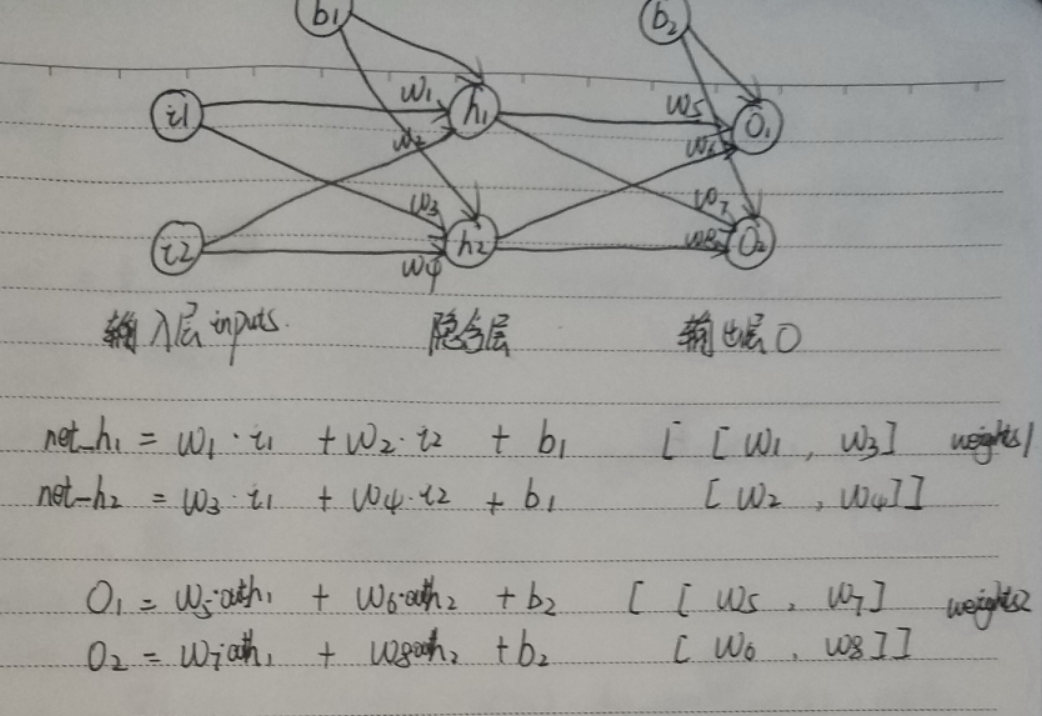 b₁ b₂
i1 w₁ h₁ w5 O₁
w₂ w₆
w₃ w₇
i2 w4 h₂ w8 O₂
输入层 inputs. 隐含层 输出层 O
net_h₁ = w₁·i₁ + w₂·i2 + b₁ [ [ w₁ , w₃] weights1
net-h₂ = w₃·i₁ + w4·i2 + b₁ [ w₂ , w4]]
O₁ = w5·outh₁ + w6·outh₂ + b₂ [ [ w5 , w7] weights2
O₂ = w7·outh₁ + w8outh₂ + b₂ [ w6 , w8]]